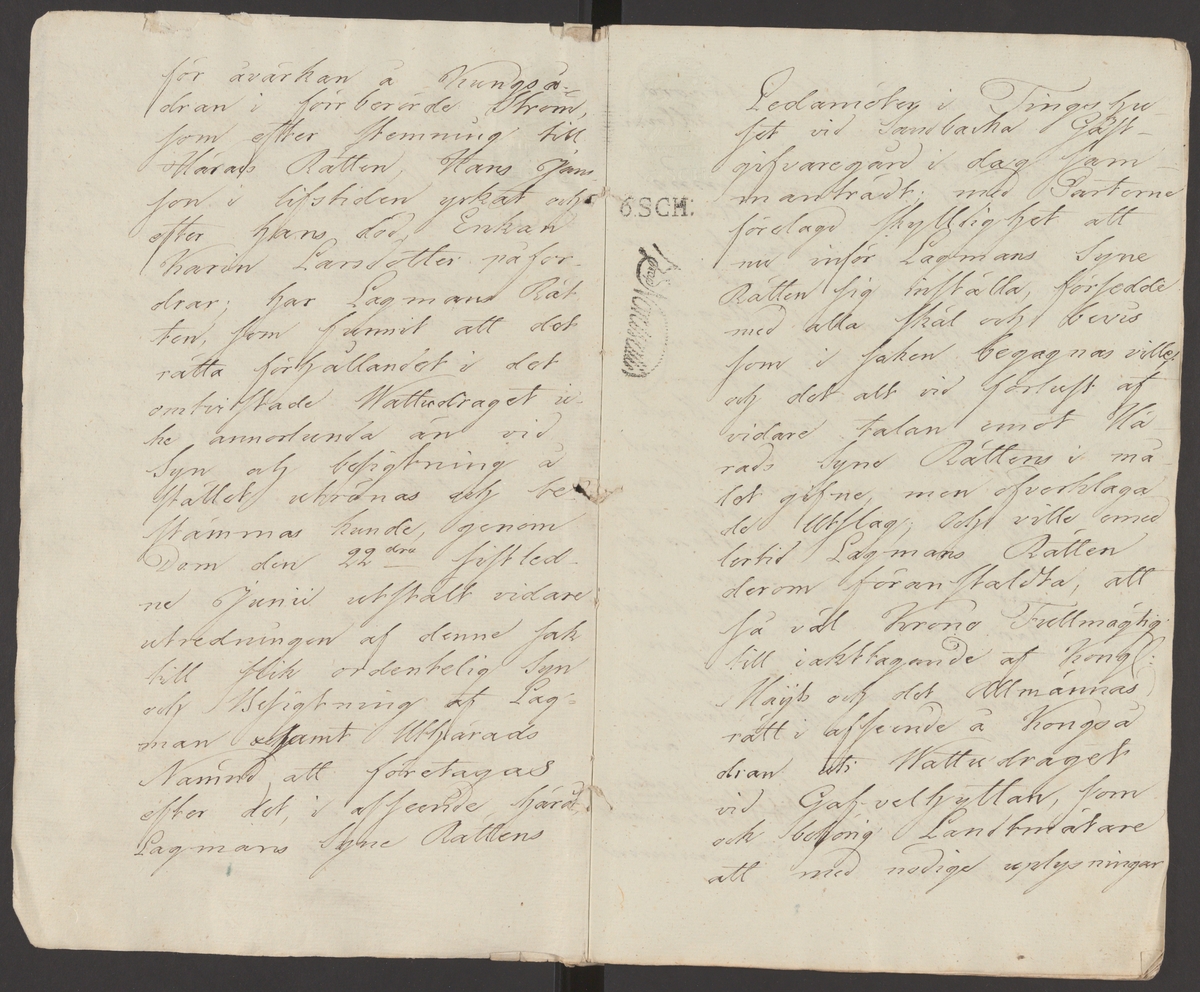 för åvärkan å Kungså-
dran i förrberörde Ström,
som efter stemning till
Härads Rätten, Hans Jans
son i lifstiden yrkat och
efter hans död Enkan
Karin Larsdotter påfor-
drar; har Lagmans Rät
ten, som funnit att det
rätta förhållandet i det
omtvistade Wattudraget ic-
ke annorlunda än vid
Syn och besigtning å
stället utrönas och be-
stämmas kunde, genom
Dom den 22dra sistled-
ne Junii utstält vidare
utredningen af denne sak
till slik ordentelig Syn
och Besigtning af Lag-
man samt Uthärads
Nämnd att företagas
efter det, i afseende härå,
Lagmans Syne Rättens
6 SCH:
Ledamöter, i Tingshu-
set vid Sandbacka Gäst-
gifvaregård i dag sam-
manträdt; med Parterne
förelagd skylldighet att
nu inför Lagmans Syne
Rätten sig inställa, försedde
med alla skäl och bevis
som i saken begagnas ville,
och det alt vid förlust af
vidare talan emot Hä-
rads Syne Rättens i må-
let gifne, men öfverklaga
de Utslag; och ville emed
lertid Lagmans Rätten
derom föranstaldta, att
så väl Krono Fullmägtig
till iakttagande af Kongl:
Maijts och det Allmännas
rätt i afseende å Kongså
dran uti Wattudraget
vid Gafvelhyttan, som
ock behörig Landtmätare
att med nödige uplysningar